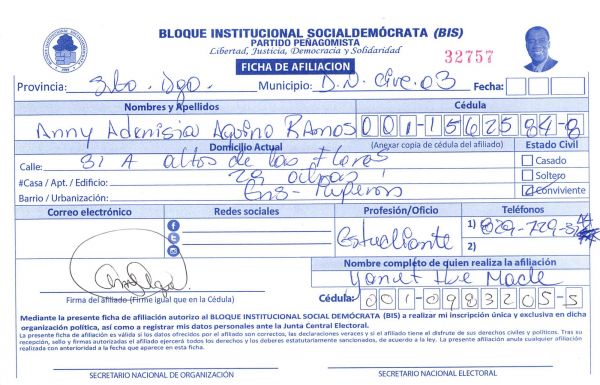 BLOQUE INSTITUCIONAL SOCIALDEMÓCRATA (BIS)
PARTIDO PEÑAGOMISTA
Libertad, Justicia, Democracia y Solidaridad
32757
FICHA DE AFILIACION
Provincia: Sto. Dgo. Municipio: D.N. Circ. 03 Fecha:
Nombres y Apellidos Cédula
Anny Adenisia Aquino RAmos 001-1562584-8
Domicilio Actual (Anexar copia de cédula del afiliado) Estado Civil
Calle: 31 A altos de las Flores Casado
#Casa / Apt. / Edificio: 28 Soltero
Barrio / Urbanización: Ens- Conviviente
Correo electrónico Redes sociales Profesión/Oficio Teléfonos
Estudiante 1) 829-729-
2)
Nombre completo de quien realiza la afiliación
Yanet
Firma del afiliado (Firme igual que en la Cédula) Cédula: 001-0983205-5
Mediante la presente ficha de afiliación autorizo al BLOQUE INSTITUCIONAL SOCIAL DEMÓCRATA (BIS) a realizar mi inscripción única y exclusiva en dicha
organización política, así como a registrar mis datos personales ante la Junta Central Electoral.
La presente ficha de afiliación es válida si los datos ofrecidos por el afiliado son correctos, las declaraciones veraces y si el afiliado tiene el disfrute de sus derechos civiles y políticos. Tras su
recepción, sello y firmas autorizadas el afiliado ejercerá todos los derechos y los deberes estatutariamente sancionados, de acuerdo a la ley. La presente afiliación anula cualquier afiliación
realizada con anterioridad a la fecha que aparece en esta ficha.
SECRETARIO NACIONAL DE ORGANIZACIÓN SECRETARIO NACIONAL ELECTORAL